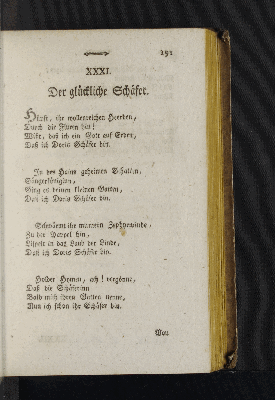 291
XXXI.
Der glückliche Schäfer.
Hüpft, ihr wollenreichen Heerden,
Durch die Fluren hin!
Wißt, daß ich ein Gott auf Erden,
Daß ich Doris Schäfer bin.
In des Hains geheimen Schatten,
Sängerköniginn,
Sing es deinem kleinen Gatten,
Daß ich Doris Schäfer bin.
Schwärmt ihr muntern Zephyrwinde,
Zu der Pappel hin,
Lispelt in das Laub der Linde,
Daß ich Doris Schäfer bin.
Holder Hymen, ach! vergönne,
Daß die Schäferinn
Bald mich ihren Gatten nenne,
Nun ich schon ihr Schäfer bin.